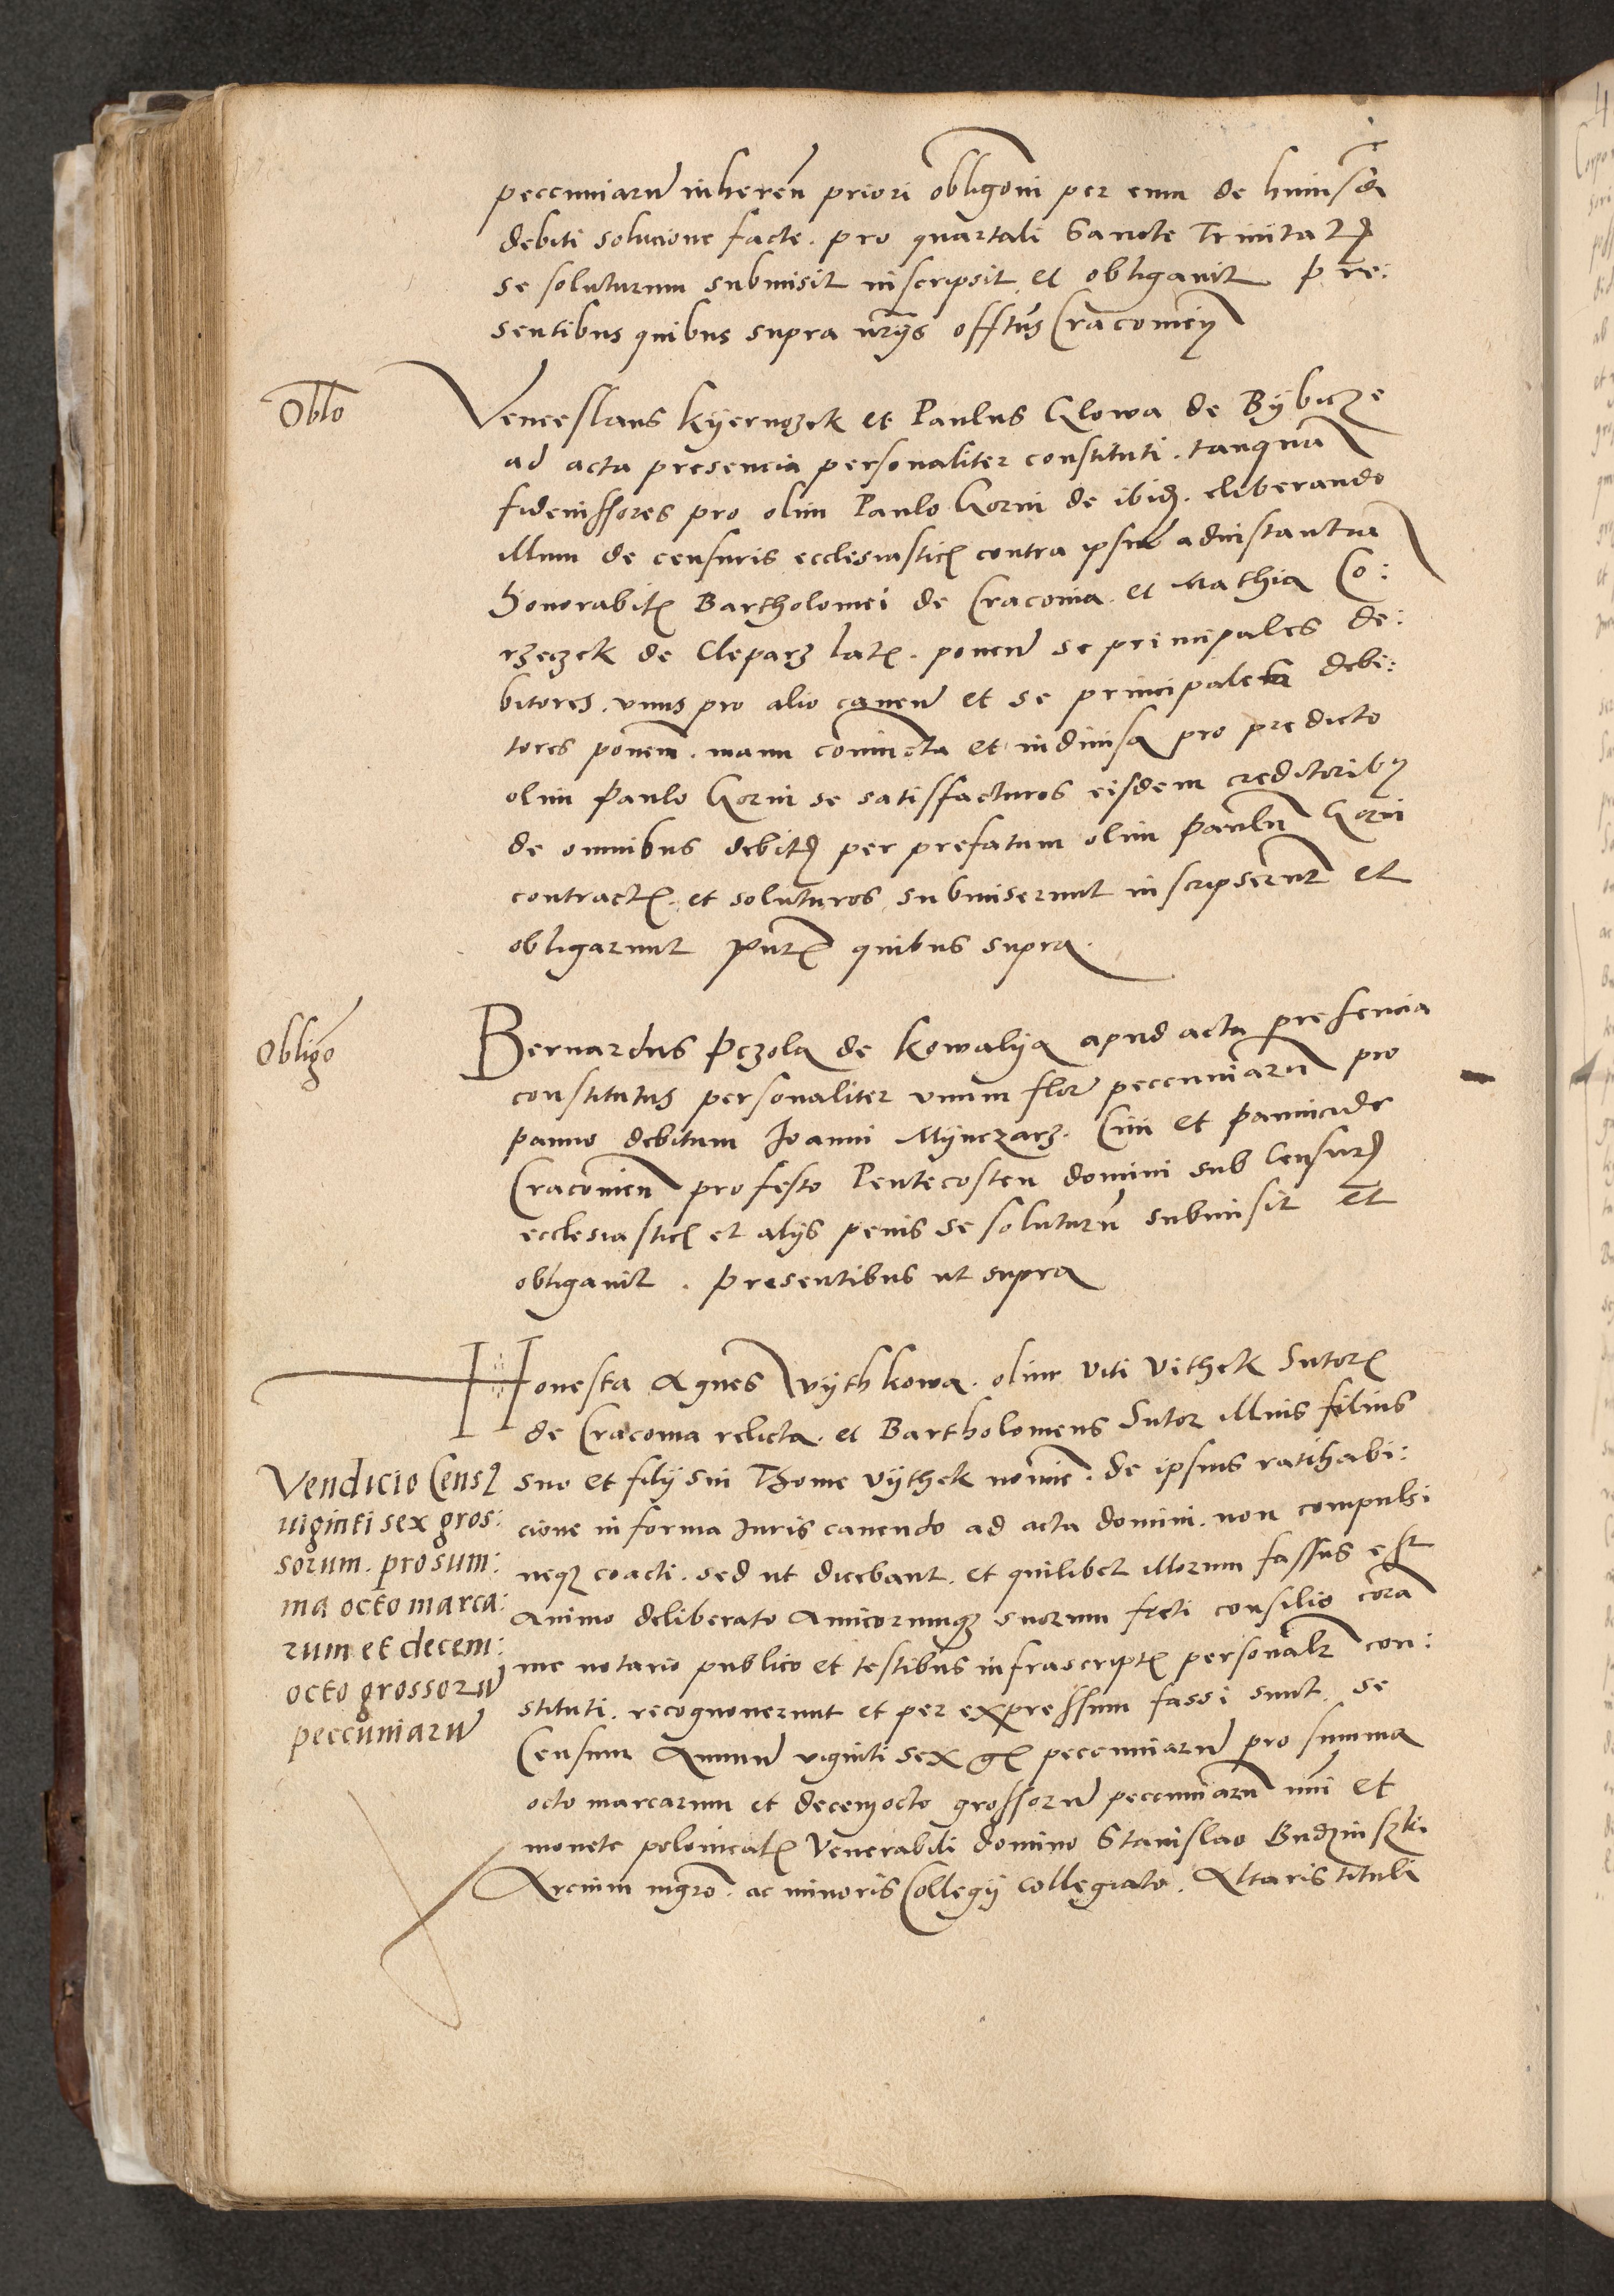 pecenniarum inheren priori obligoni per eum de huiusdi
debiti solucione facte. pro quartali Sancte Trinitatis
se soluturum submisit inscripsit et obligavit pre:
sentibus quibus supra nrys offtus Cracovien
Oblo
Venceslaus Kyernozek et Paulus Glowa de Bybicze
ad acta presencia personaliter constituti. tanquam
fideiussores pro olim Paulo Gorni de ibid. eliberando
illum de censuris ecclesiasticis contra ipsum ad instantiam
Honorabilis Bartholomei de Cracovia. et Mathia Co:
rzeczek de Cleparz latis. ponen se principales de:
bitores. unus pro alio caven et se principales debi:
tores ponen. manu coniuncta et indivisa pro predicto
olim Paulo Gorni se satisffacturos eisdem creditoribus
de omnibus debitis per prefatum olim Paulum Gorni
contractis. et soluturos submiserunt inscripserunt et
obligarunt pntis quibus supra.
Obligo
Bernardus Pczola de Kowalya apud acta presencia
constitutus personaliter unum flor pecenniarum pro
panno debitum Ioanni Mynczarz. Civi et pannicide
Cracovien pro festo Pentecosten domini sub Censuris
ecclesiasticis et alys penis se soluturum submisit et
obligavit. presentibus ut supra
Honesta Agnes Wythkowa. olim Viti Vithek Sutoris
de Cracovia relicta. et Bartholomeus Sutor illius filius
suo et filij sui Thome Vythek nomine. de ipsius ratihabi:
cione in forma Iuris cavendo ad acta domini. non compulsi
neque coacti. sed ut dicebant. et quilibet illorum fassus est
animo deliberato amicorumque suorum freti consilio coram
me notario publico et testibus infrascriptis personalr con:
stituti. recognoverunt et per expressum fassi sunt. se
Censum Annuum viginti sex gs pecenniarum pro summa
octo marcarum et decem octo grossorum pecenniarum nui et
monete polonicalis Venerabili domino Stanislao Budzinszki
Arcium mgro. ac minoris Collegij collegiato. Altaris tituli
Vendicio Census
viginti sex gros:
sorum. pro sum:
ma octo marca:
rum et decem:
octo grossorum
peccuniarum